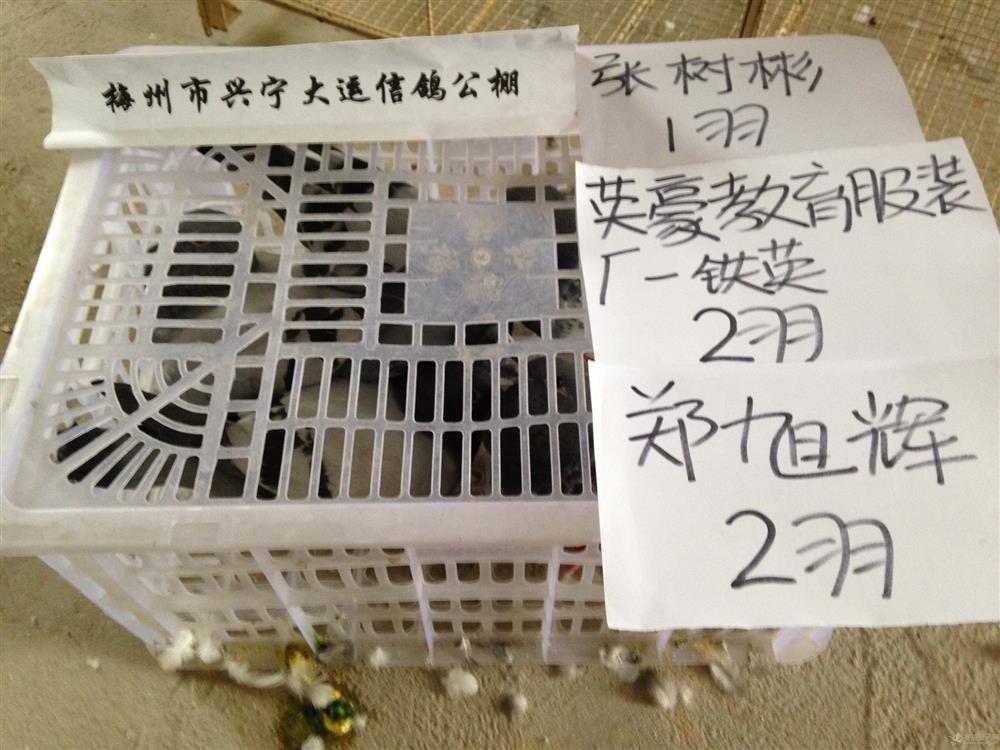 梅州市兴宁大运信鸽公棚
张树彬
1羽
英豪教育服装
厂一铁英
2羽
郑旭辉
2羽